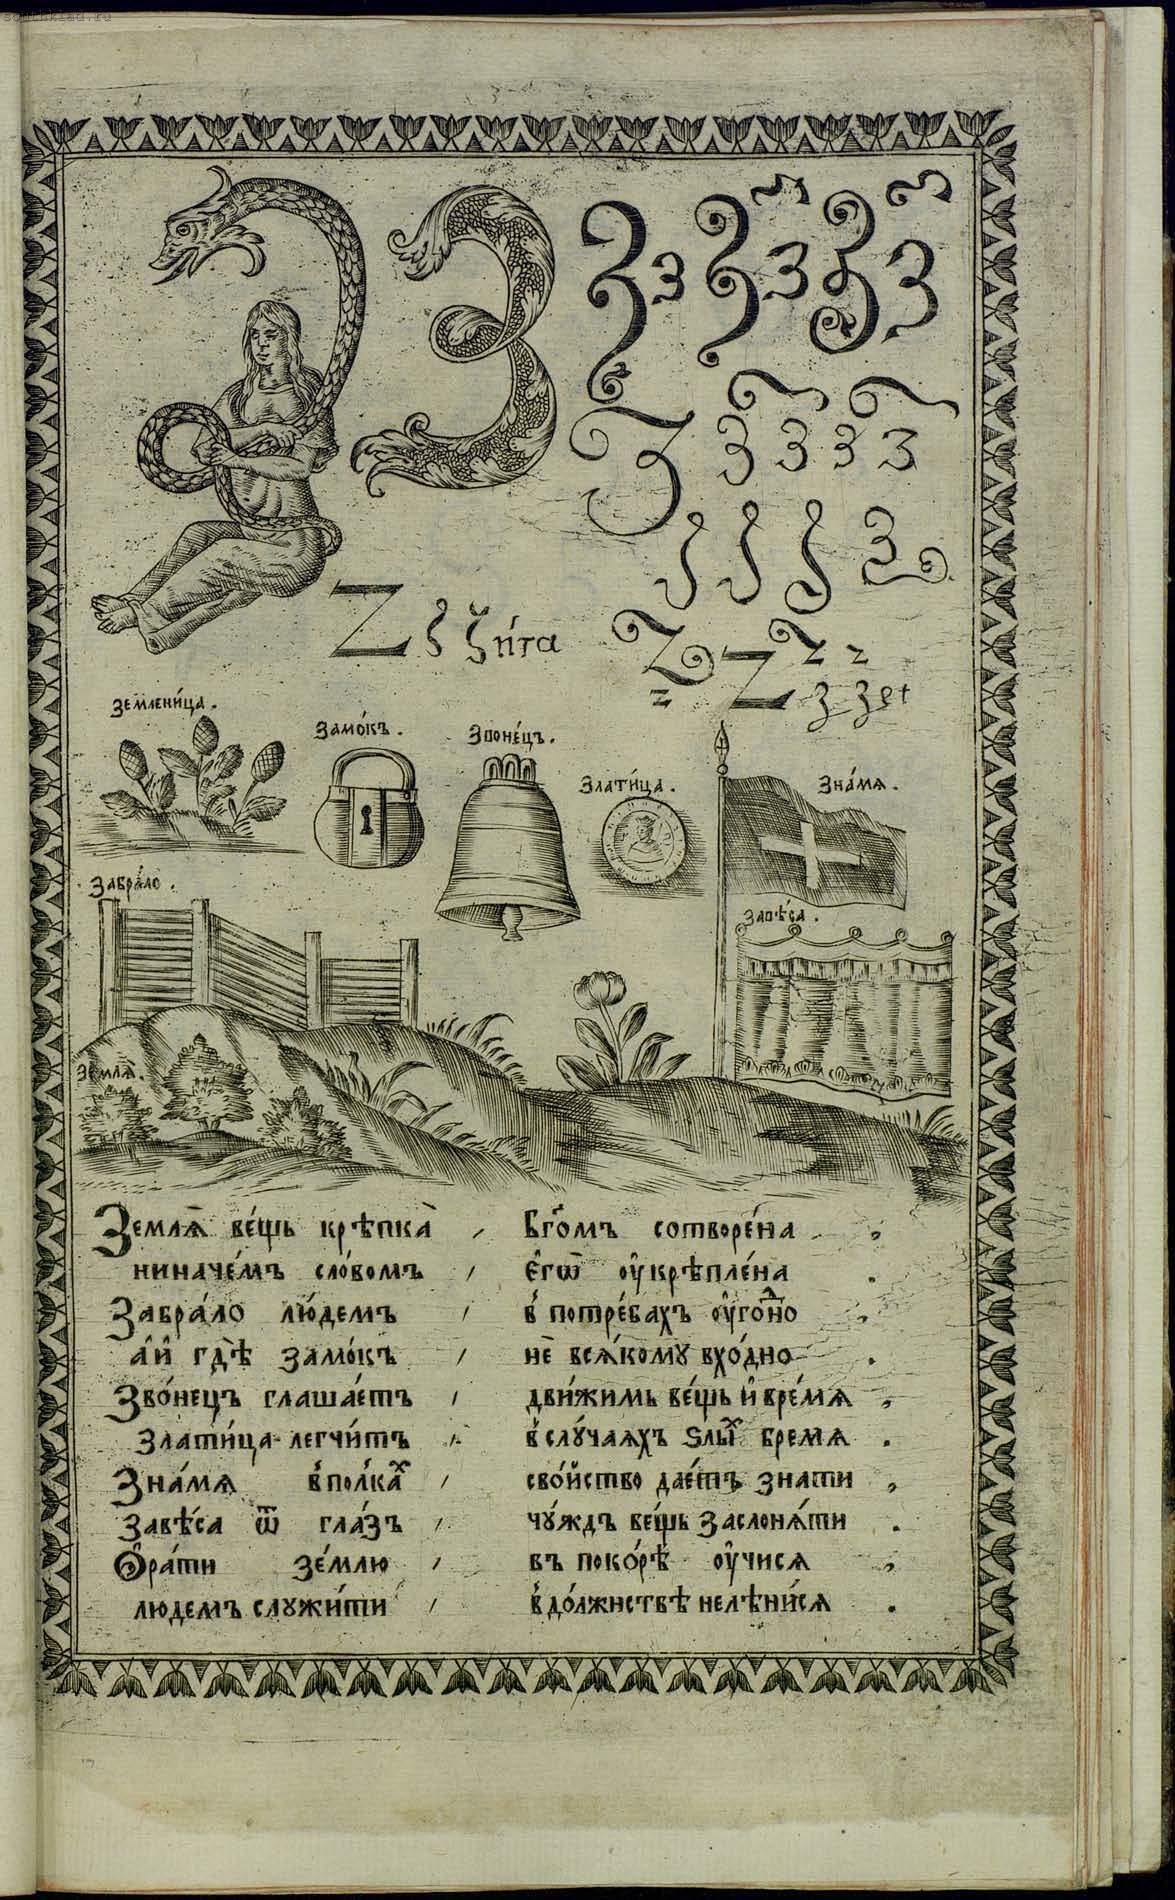 southklad.ru
З з З з З з
З з з з з
З
Z ζ ζи́та
Z Z z z
z з зet
Землени́ца .
Замо́къ .
Звоне́цъ .
Злати́ца .
Зна́мѧ .
Забра́ло .
Завѣ́са .
Землѧ̀ .
Землѧ̀ ве́щь крѣпка̀ , Бг҃омъ сотворе́на ,
ниначе́мъ сло́вомъ , є҆гѡ̀ ᲂу҆крѣпле́на .
Забра́ло лю́демъ , в҆ потре́бахъ ᲂу҆го́дно ,
а҆ и҆ гдѣ̀ замо́къ , нѐ всѧ́кому вхо́дно .
Зво́нецъ глаша́етъ , дви́жимь ве́щь и҆ вре́мѧ ,
злати́ца легчи́тъ , в҆ слу́чаѧхъ ѕлы́х бремѧ .
Зна́мѧ в҆полка́х , сво́йство дае́тъ знати ,
Завѣ́са ѿ гла́зъ , чу́ждъ ве́щь заслонѧ́ти .
Ѻ҆ра́ти зе́млю , въ поко́рѣ ᲂу҆чисѧ ,
людемъ служи́ти , в҆до́лжнствѣ нелѣни́сѧ .